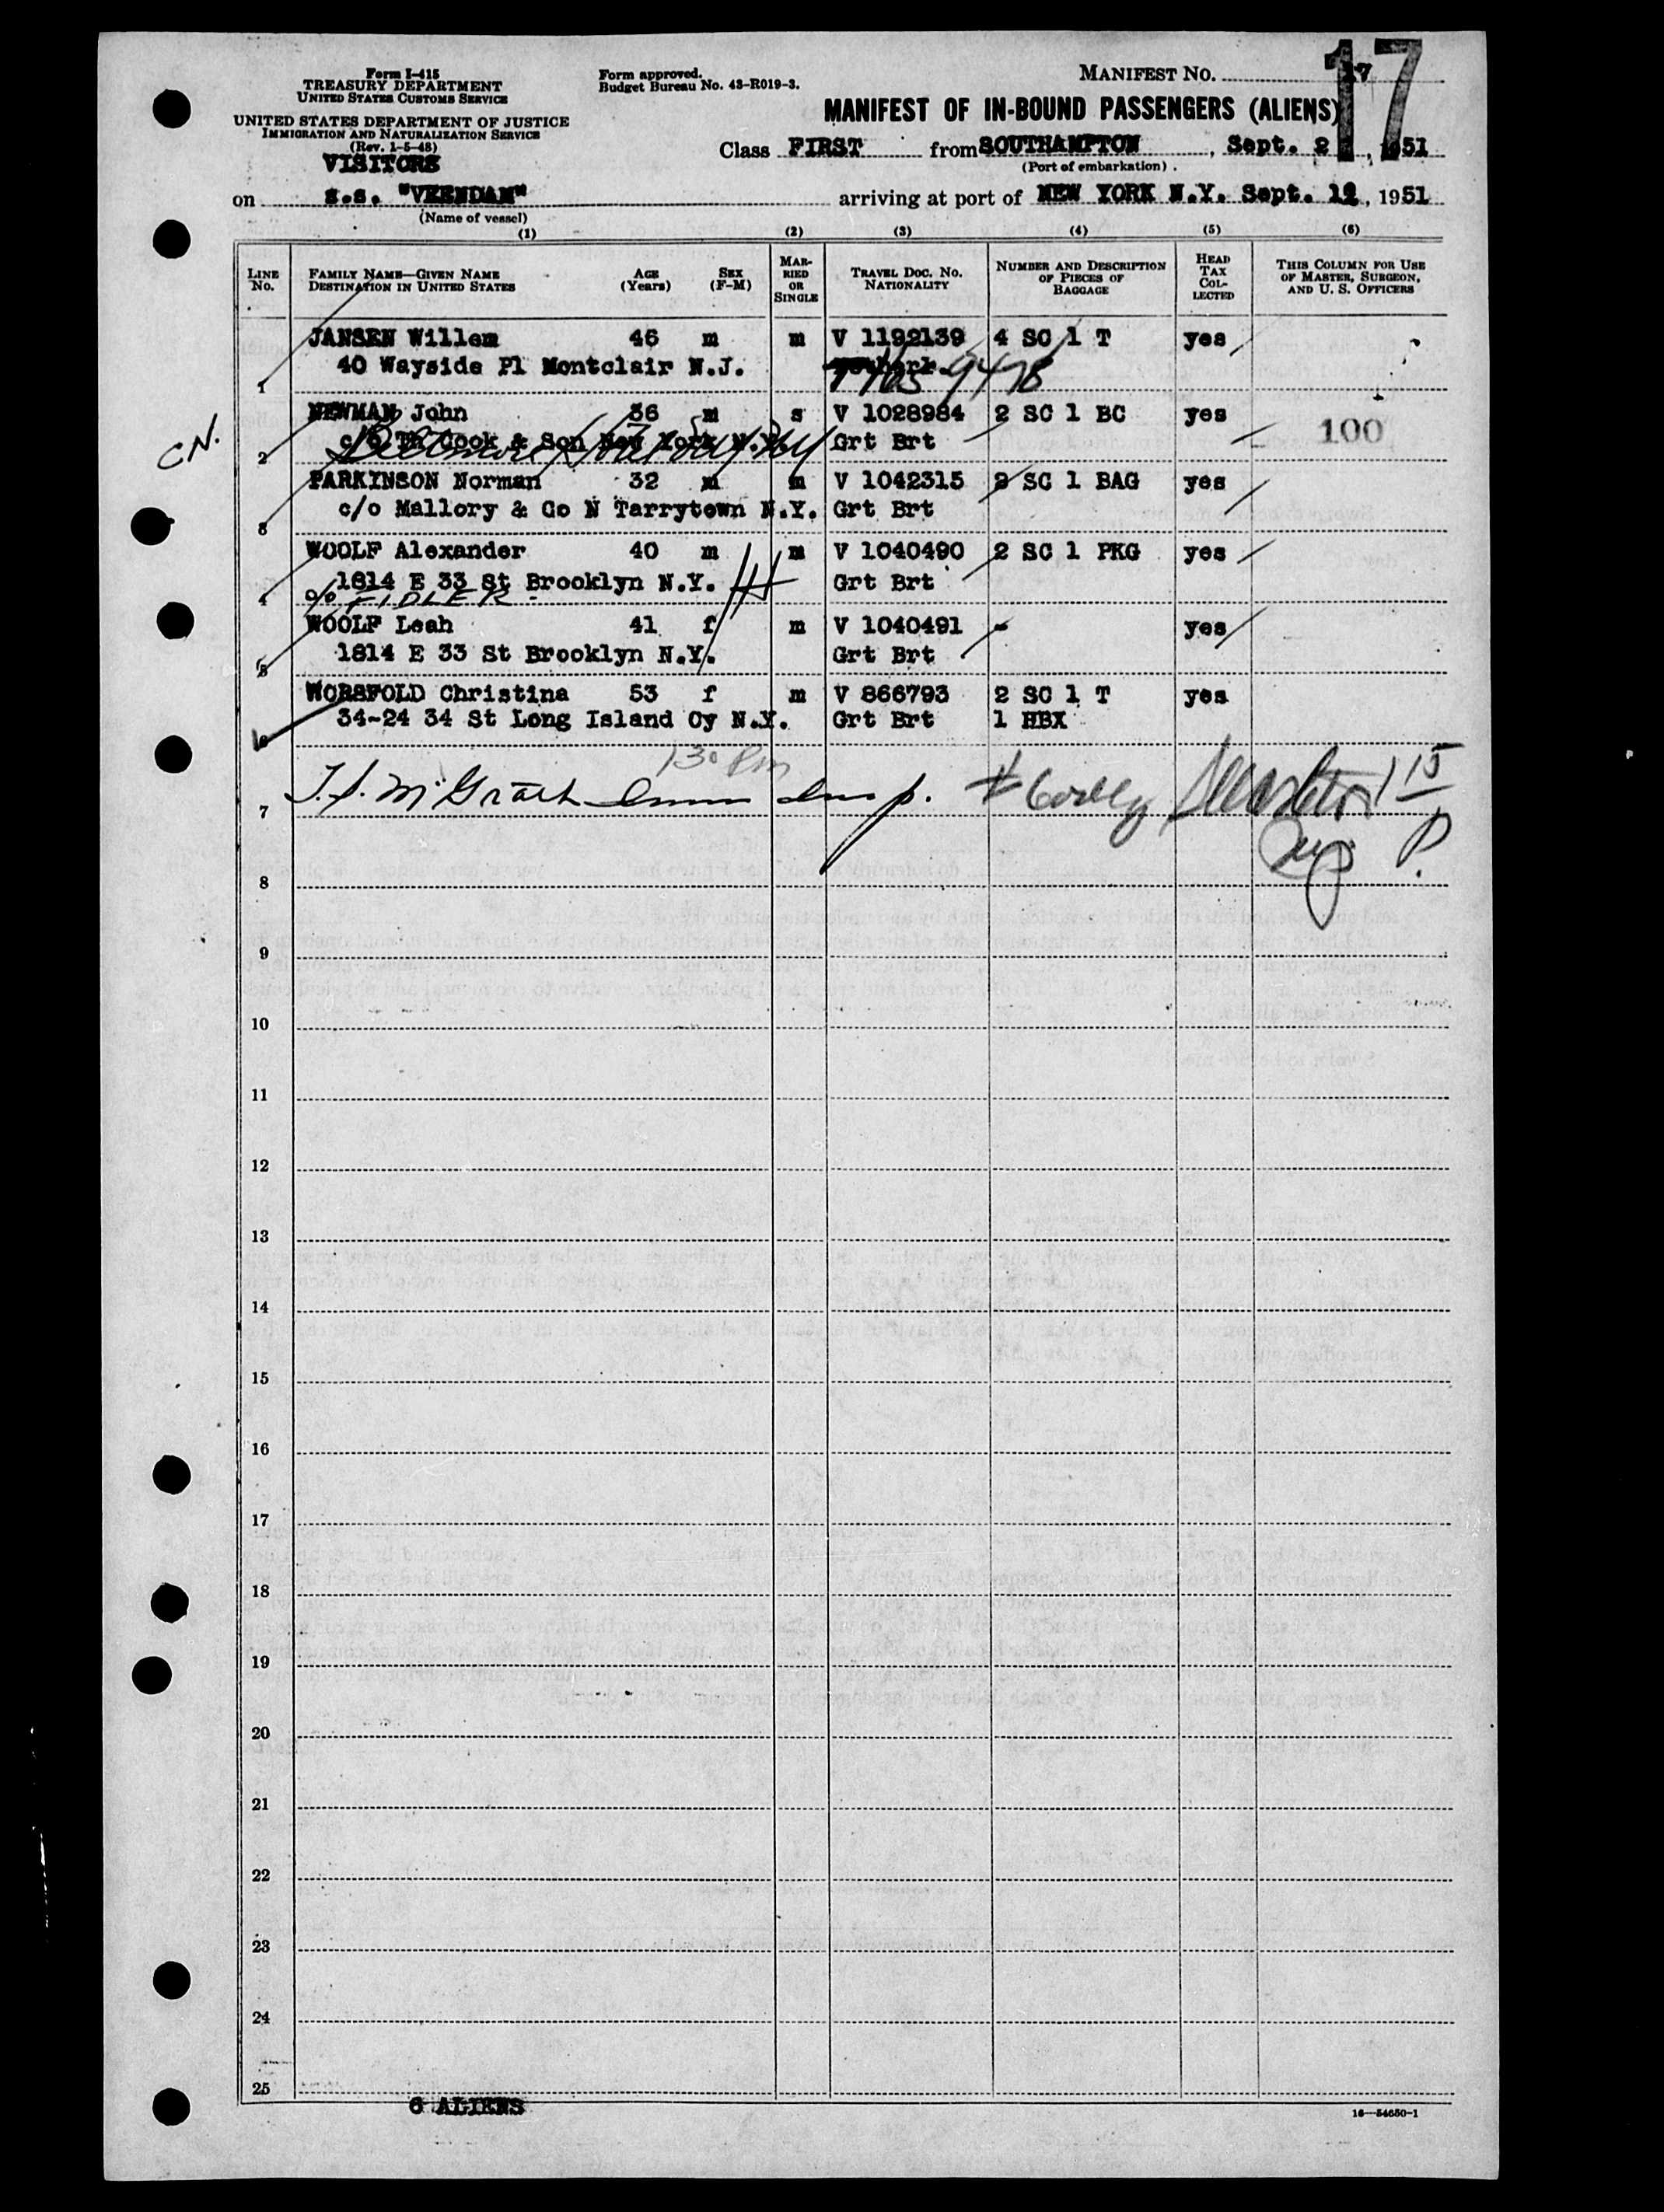 Form I-415
TREASURY DEPARTMENT
UNITED STATES CUSTOMS SERVICE
UNITED STATES DEPARTMENT OF JUSTICE
IMMIGRATION AND NATURALIZATION SERVICE
(Rev. 1-5-48)
VISITORS
Form approved.
Budget Bureau No. 43-R019-3.
MANIFEST NO. 17
17
MANIFEST OF IN-BOUND PASSENGERS (ALIENS)
Class FIRST from SOUTHAMPTON, Sept. 2, 1951
(Port of embarkation)
on s.s. "VEENDAM" arriving at port of NEW YORK N.Y. Sept. 12, 1951
(Name of vessel)
(1) (2) (3) (4) (5) (6)
LINE No. FAMILY NAME—GIVEN NAME DESTINATION IN UNITED STATES AGE (Years) SEX (F-M) MARRIED OR SINGLE TRAVEL DOC. NO. NATIONALITY NUMBER AND DESCRIPTION OF PIECES OF BAGGAGE HEAD TAX COLLECTED THIS COLUMN FOR USE OF MASTER, SURGEON, AND U. S. OFFICERS
JANSEN Willem 46 m m V 1192139 4 SC 1 T yes
1 40 Wayside Pl Montclair N.J.
NEWMAN John 36 m s V 1028984 2 SC 1 BC yes
CN. 2 c/o Th Cook & Son New York N.Y. Grt Brt 100
PARKINSON Norman 32 m m V 1042315 2 SC 1 BAG yes
3 c/o Mallory & Co N Tarrytown N.Y. Grt Brt
WOOLF Alexander 40 m m V 1040490 2 SC 1 PKG yes
1814 E 33 St Brooklyn N.Y. Grt Brt
4 c/o FIDLER
WOOLF Leah 41 f m V 1040491 - yes
5 1814 E 33 St Brooklyn N.Y. Grt Brt
WORSFOLD Christina 53 f m V 866793 2 SC 1 T yes
6 34-24 34 St Long Island Cy N.Y. Grt Brt 1 HBX
130 Pm
7 T. J. McGrath Imm Insp.
115 P.
8
9
10
11
12
13
14
15
16
17
18
19
20
21
22
23
24
25
6 ALIENS
16—54650-1